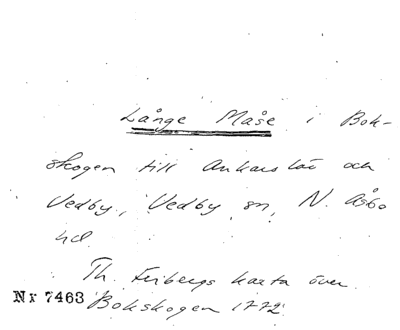 Långe Måse i Bok-
skogen till Ankarslöv och
Vedby, Vedby sn, N. Åsbo
hd.
Th. Fribergs karta över
Nr 7463 Bokskogen 1772.